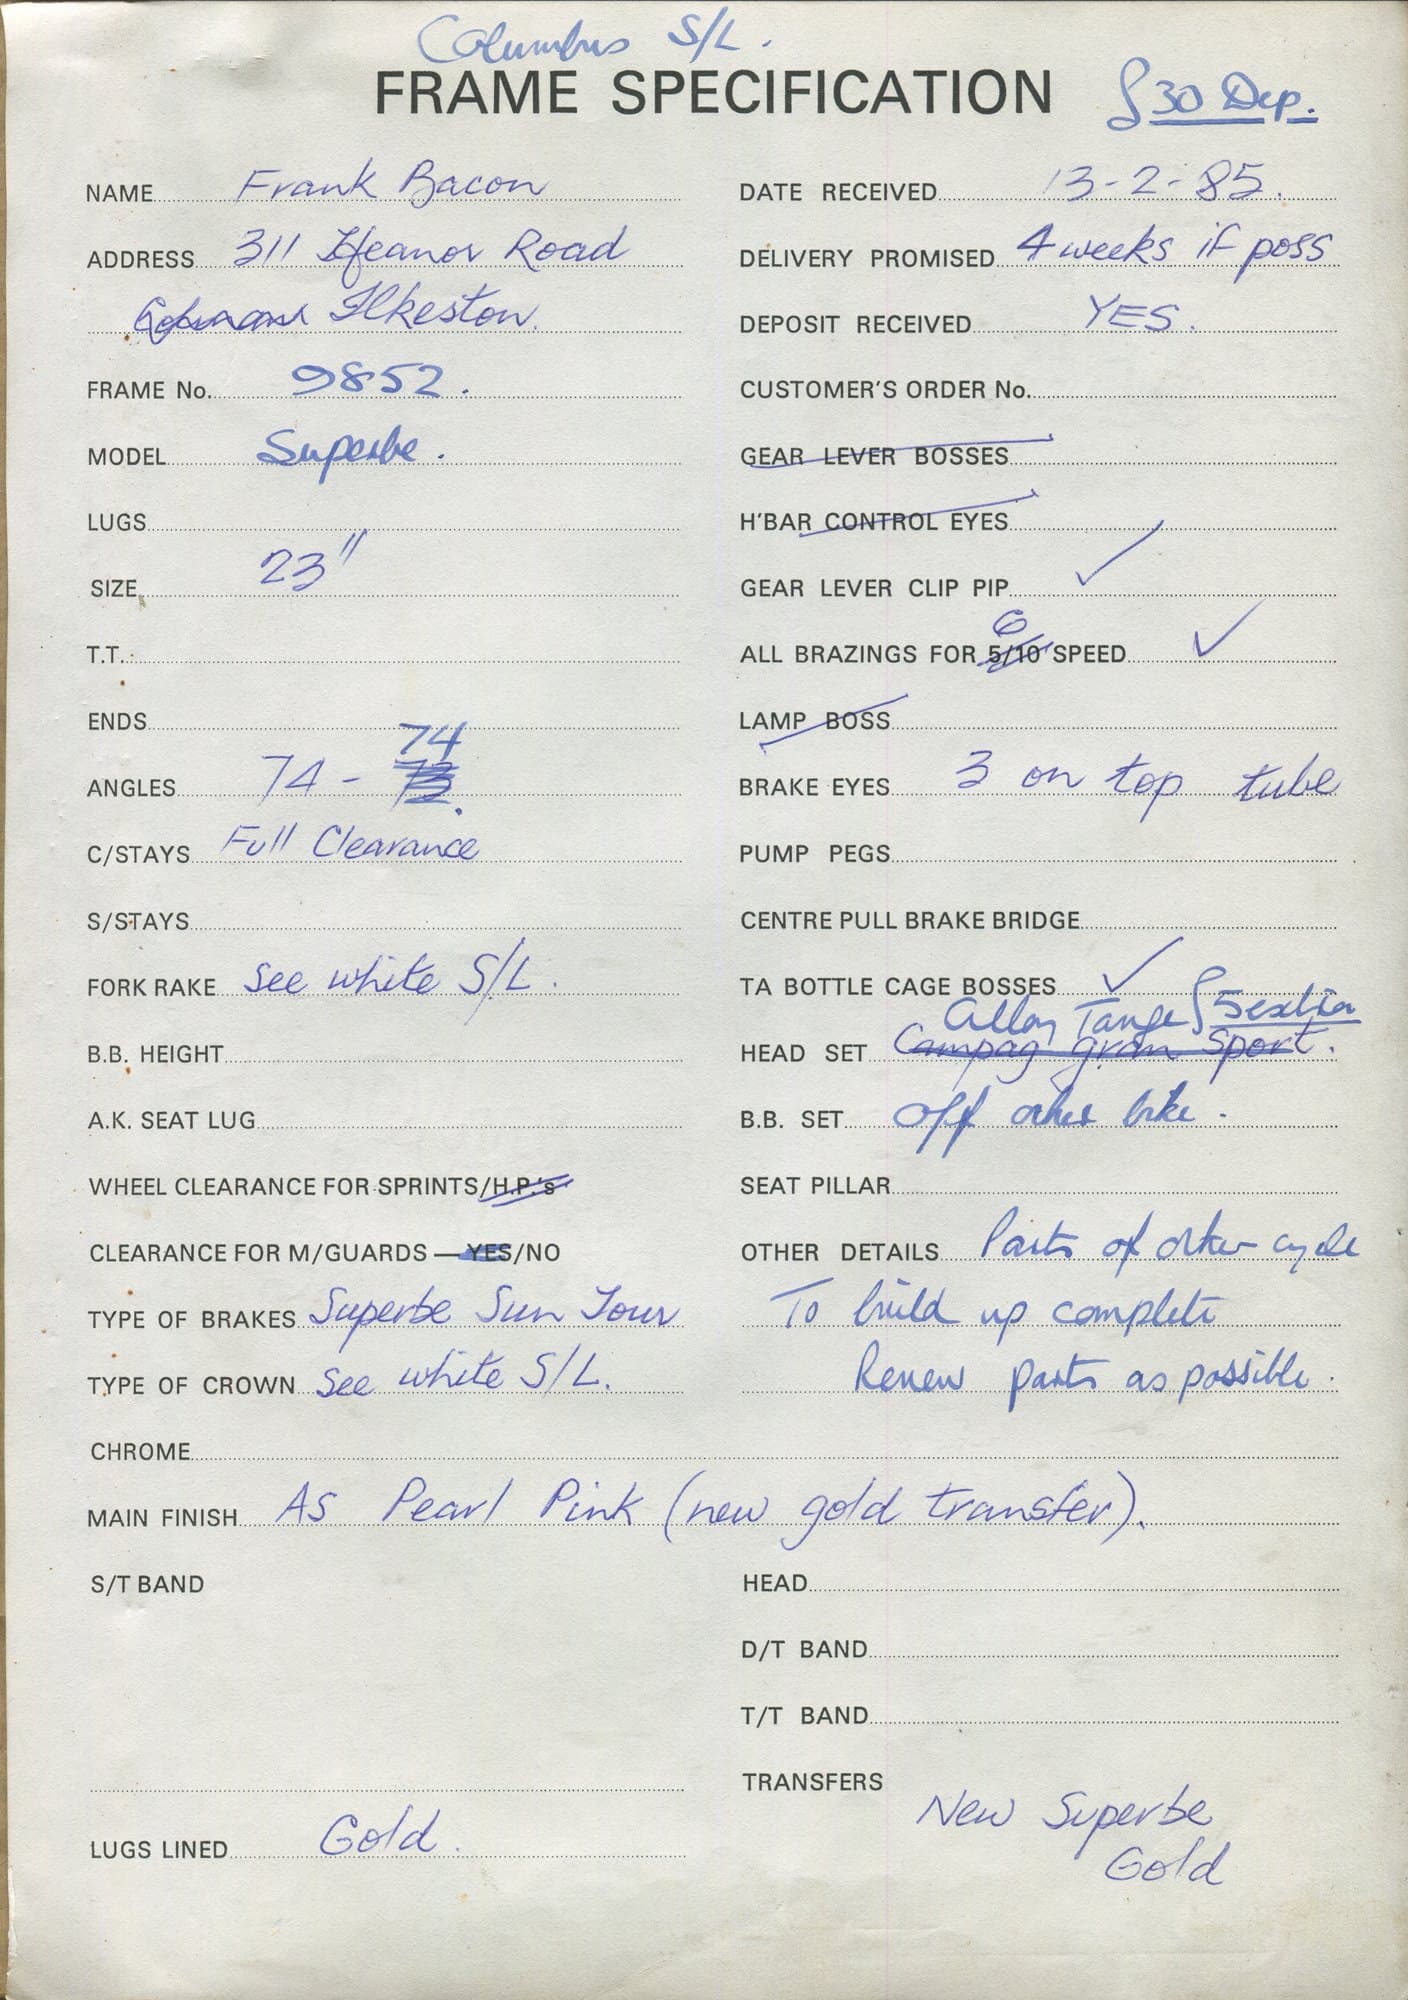 Columbus S/L.
FRAME SPECIFICATION
£30 Dep.
NAME Frank Bacon
ADDRESS 311 Heanor Road
Ilkeston.
FRAME No. 9852.
MODEL Superbe.
LUGS
SIZE 23"
T.T.
ENDS
ANGLES 74 - 73 74
C/STAYS Full Clearance
S/STAYS
FORK RAKE See white S/L.
B.B. HEIGHT
A.K. SEAT LUG
WHEEL CLEARANCE FOR SPRINTS/H.P.'s
CLEARANCE FOR M/GUARDS — YES/NO
TYPE OF BRAKES Superbe Sun Tour
TYPE OF CROWN See white S/L.
DATE RECEIVED 13-2-85.
DELIVERY PROMISED 4 weeks if poss
DEPOSIT RECEIVED YES.
CUSTOMER'S ORDER No.
GEAR LEVER BOSSES
H'BAR CONTROL EYES
GEAR LEVER CLIP PIP ✓
6
ALL BRAZINGS FOR 5/10 SPEED ✓
LAMP BOSS
BRAKE EYES 3 on top tube
PUMP PEGS
CENTRE PULL BRAKE BRIDGE
TA BOTTLE CAGE BOSSES ✓
Alloy Tange £5 extra
HEAD SET Campag gran Sport.
B.B. SET Off other bike.
SEAT PILLAR
OTHER DETAILS Parts of other cycle
To build up complete
Renew parts as possible.
CHROME
MAIN FINISH As Pearl Pink (new gold transfer).
S/T BAND
LUGS LINED Gold.
HEAD
D/T BAND
T/T BAND
TRANSFERS
New Superbe
Gold